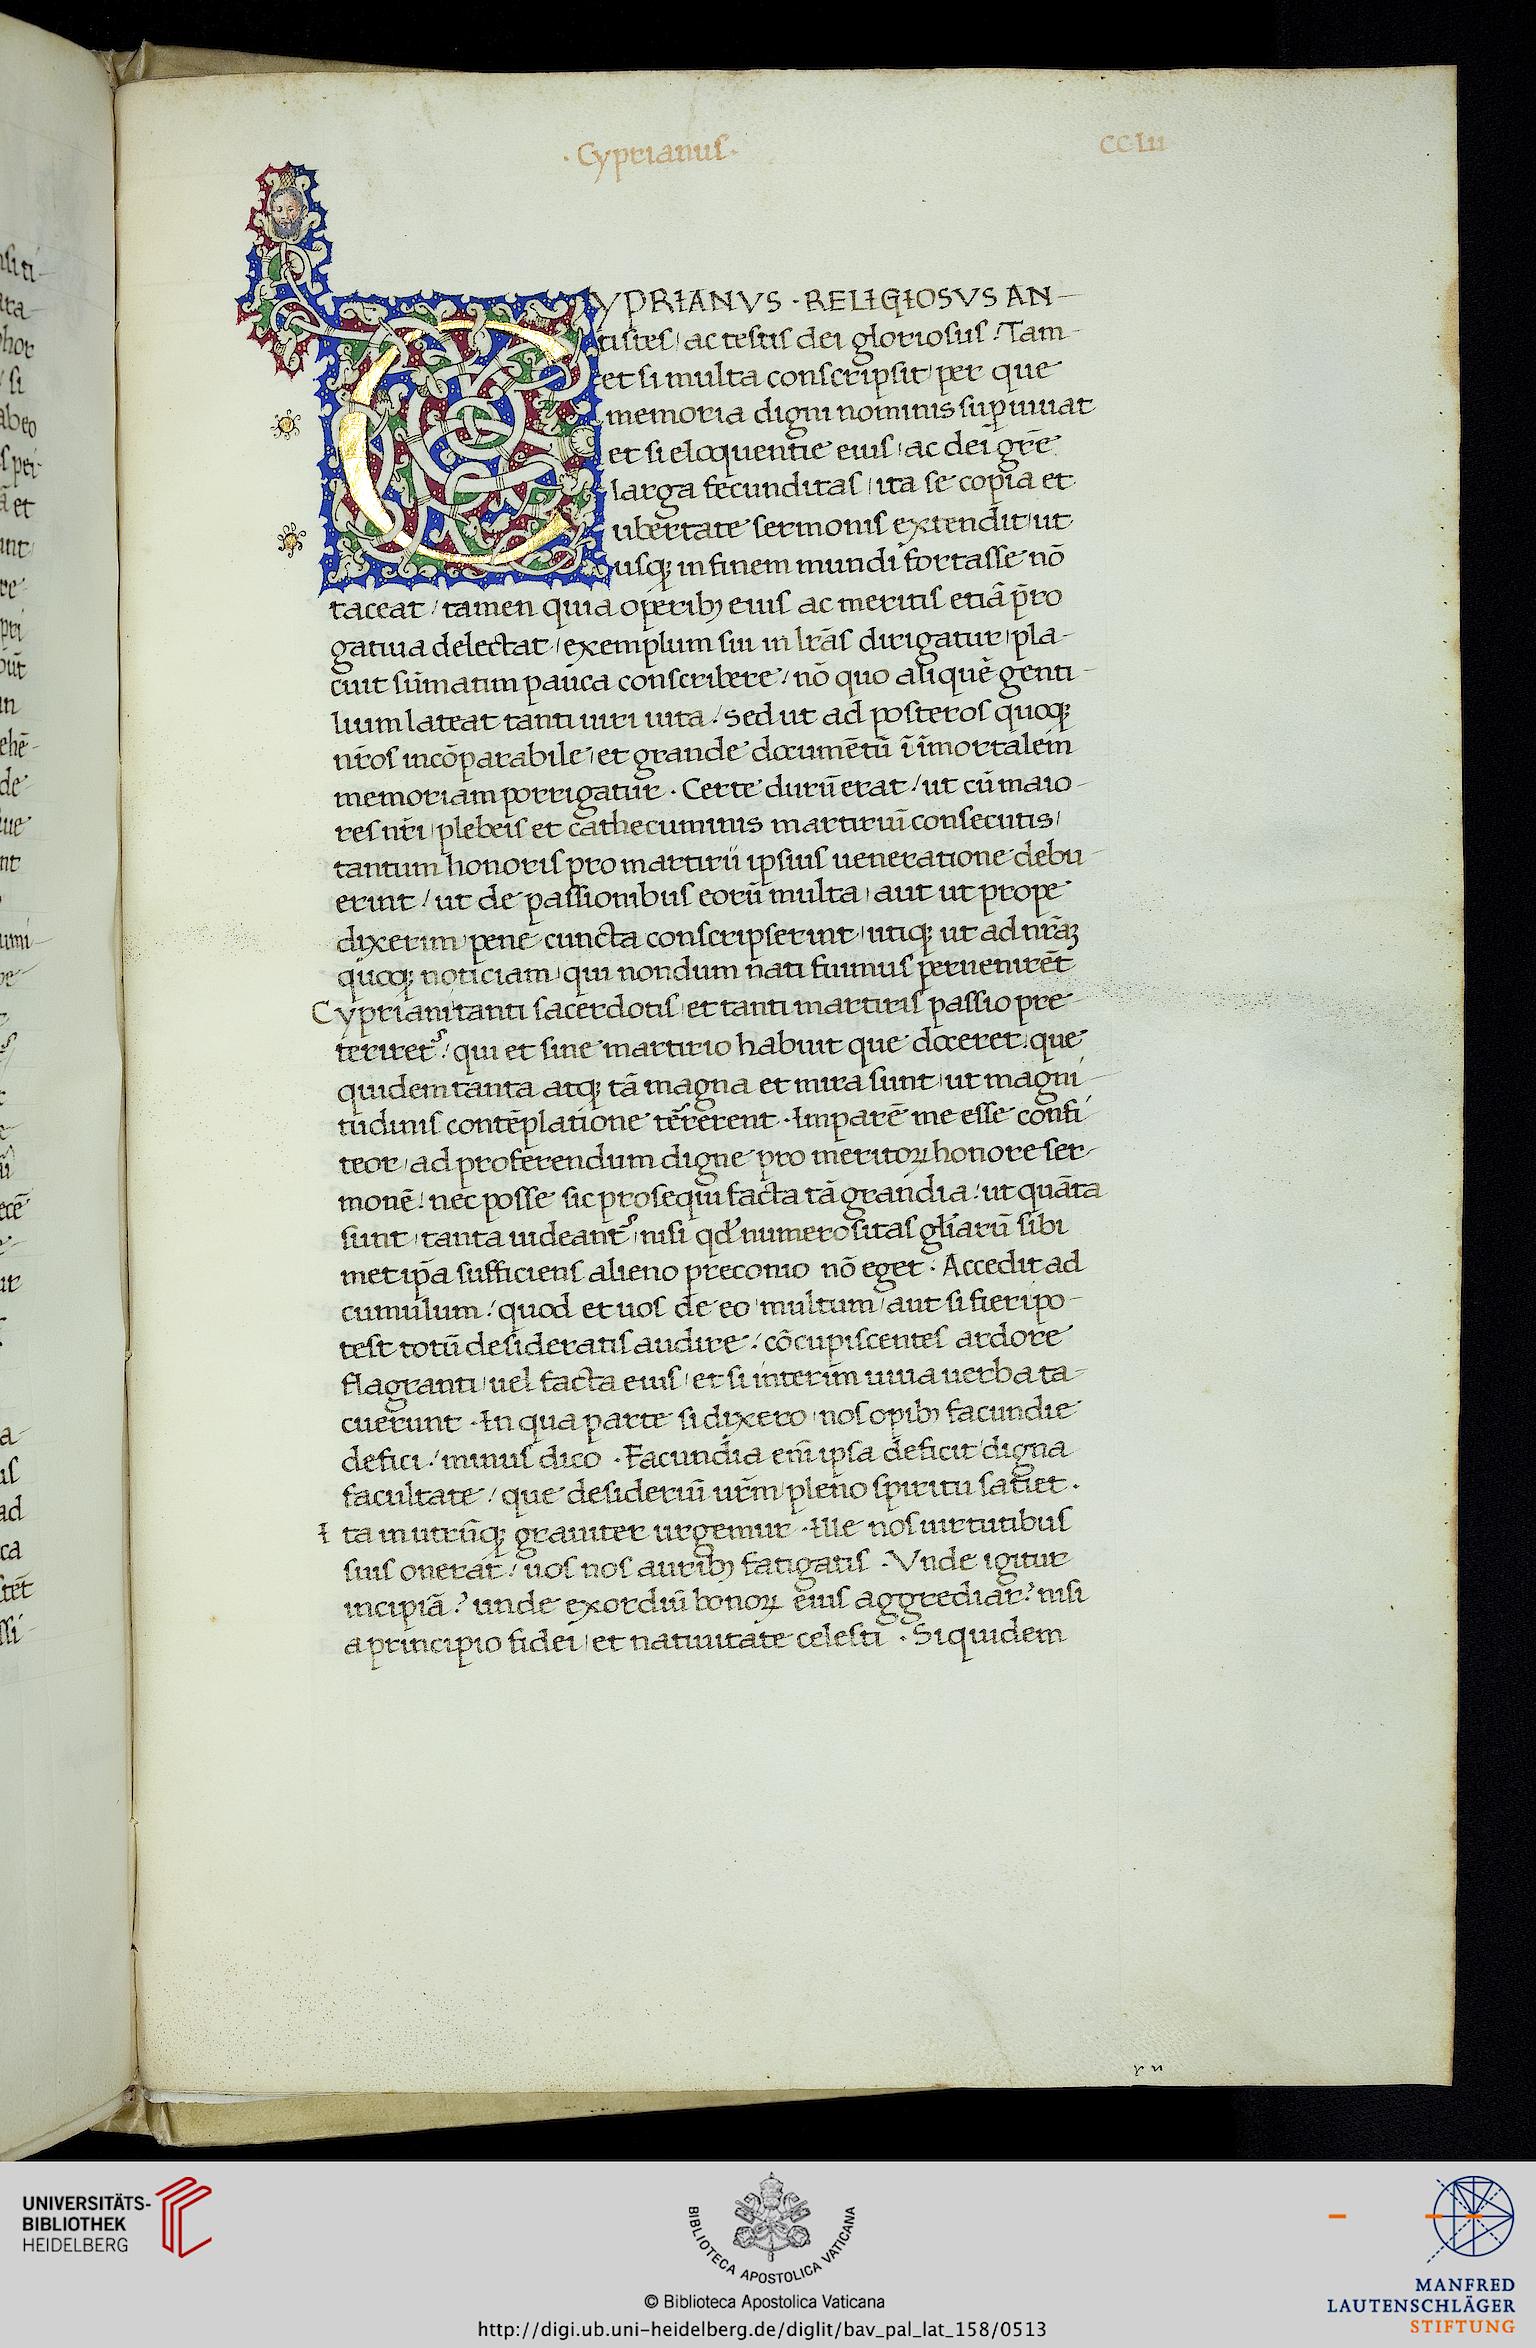 ·Cyprianus·
CCLII
YPRIANVS · RELIGIOSVS AN-
tistes, ac testis dei gloriosus / Tam-
et si multa conscripsit, per que
memoria digni nominis sup̲uiuat
et si eloquentie eius, ac dei gr̄e
larga fecunditas, ita se copia et
ubertate sermonis extendit, ut
usq; in finem mundi fortasse nō
taceat / tamen quia operib; eius ac meritis etiā p̄ro
gatiua delectat, exemplum sui in lr̄as dirigatur, pla-
cuit sūmatim pauca conscribere / nō quo aliquē genti-
lium lateat tanti uiri uita / sed ut ad posteros quoq;
nr̄os incōparabile, et grande documētū ī īmortalem
memoriam porrigatur · Certe durū erat / ut cū maio-
res nr̄i, plebeis et cathecuminis martiriū consecutis,
tantum honoris pro martirii ipsius ueneratione debu-
erint / ut de passionibus eorū multa, aut ut prope
dixerim, pene cuncta conscripserint, utiq; ut ad nr̄aꝫ
quoq; noticiam, qui nondum nati fuimus peruenirēt
Cypriani tanti sacerdotis, et tanti martiris passio pre-
teriret᷑ / qui et sine martirio habuit que doceret, que
quidem tanta atq; tā magna et mira sunt, ut magni-
tudinis contēplatione tēr̄erent · Imparē me esse confi-
teor, ad proferendum digne pro meritoꝝ honore ser-
monē / nec posse sic prosequi facta tā grandia / ut quāta
sunt, tanta uideant᷑, nisi qđ numerositas gl̄iarū sibi
met ip̄a sufficiens alieno preconio nō eget · Accedit ad
cumulum / quod et uos de eo, multum, aut si fieri po-
test totū desideratis audire / cōcupiscentes ardore
flagranti, uel facta eius, et si interim uiua uerba ta-
cuerunt · In qua parte si dixero, nos opib; facundie
defici / minus dico · Facundia eni̅ ipsa deficit, digna
facultate / que desideriū ur̄m, pleno spiritu satiet ·
Ita in utrūq; grauiter urgemur · Ille nos uirtutibus
suis onerat / uos nos aurib; fatigatis · Vnde igitur
incipiā? unde exordiū bonoꝝ eius aggrediar? nisi
a principio fidei, et natiuitate celesti · Siquidem
UNIVERSITÄTS-
BIBLIOTHEK
HEIDELBERG
BIBLIOTECA APOSTOLICA VATICANA
© Biblioteca Apostolica Vaticana
http://digi.ub.uni-heidelberg.de/diglit/bav_pal_lat_158/0513
MANFRED
LAUTENSCHLÄGER
STIFTUNG